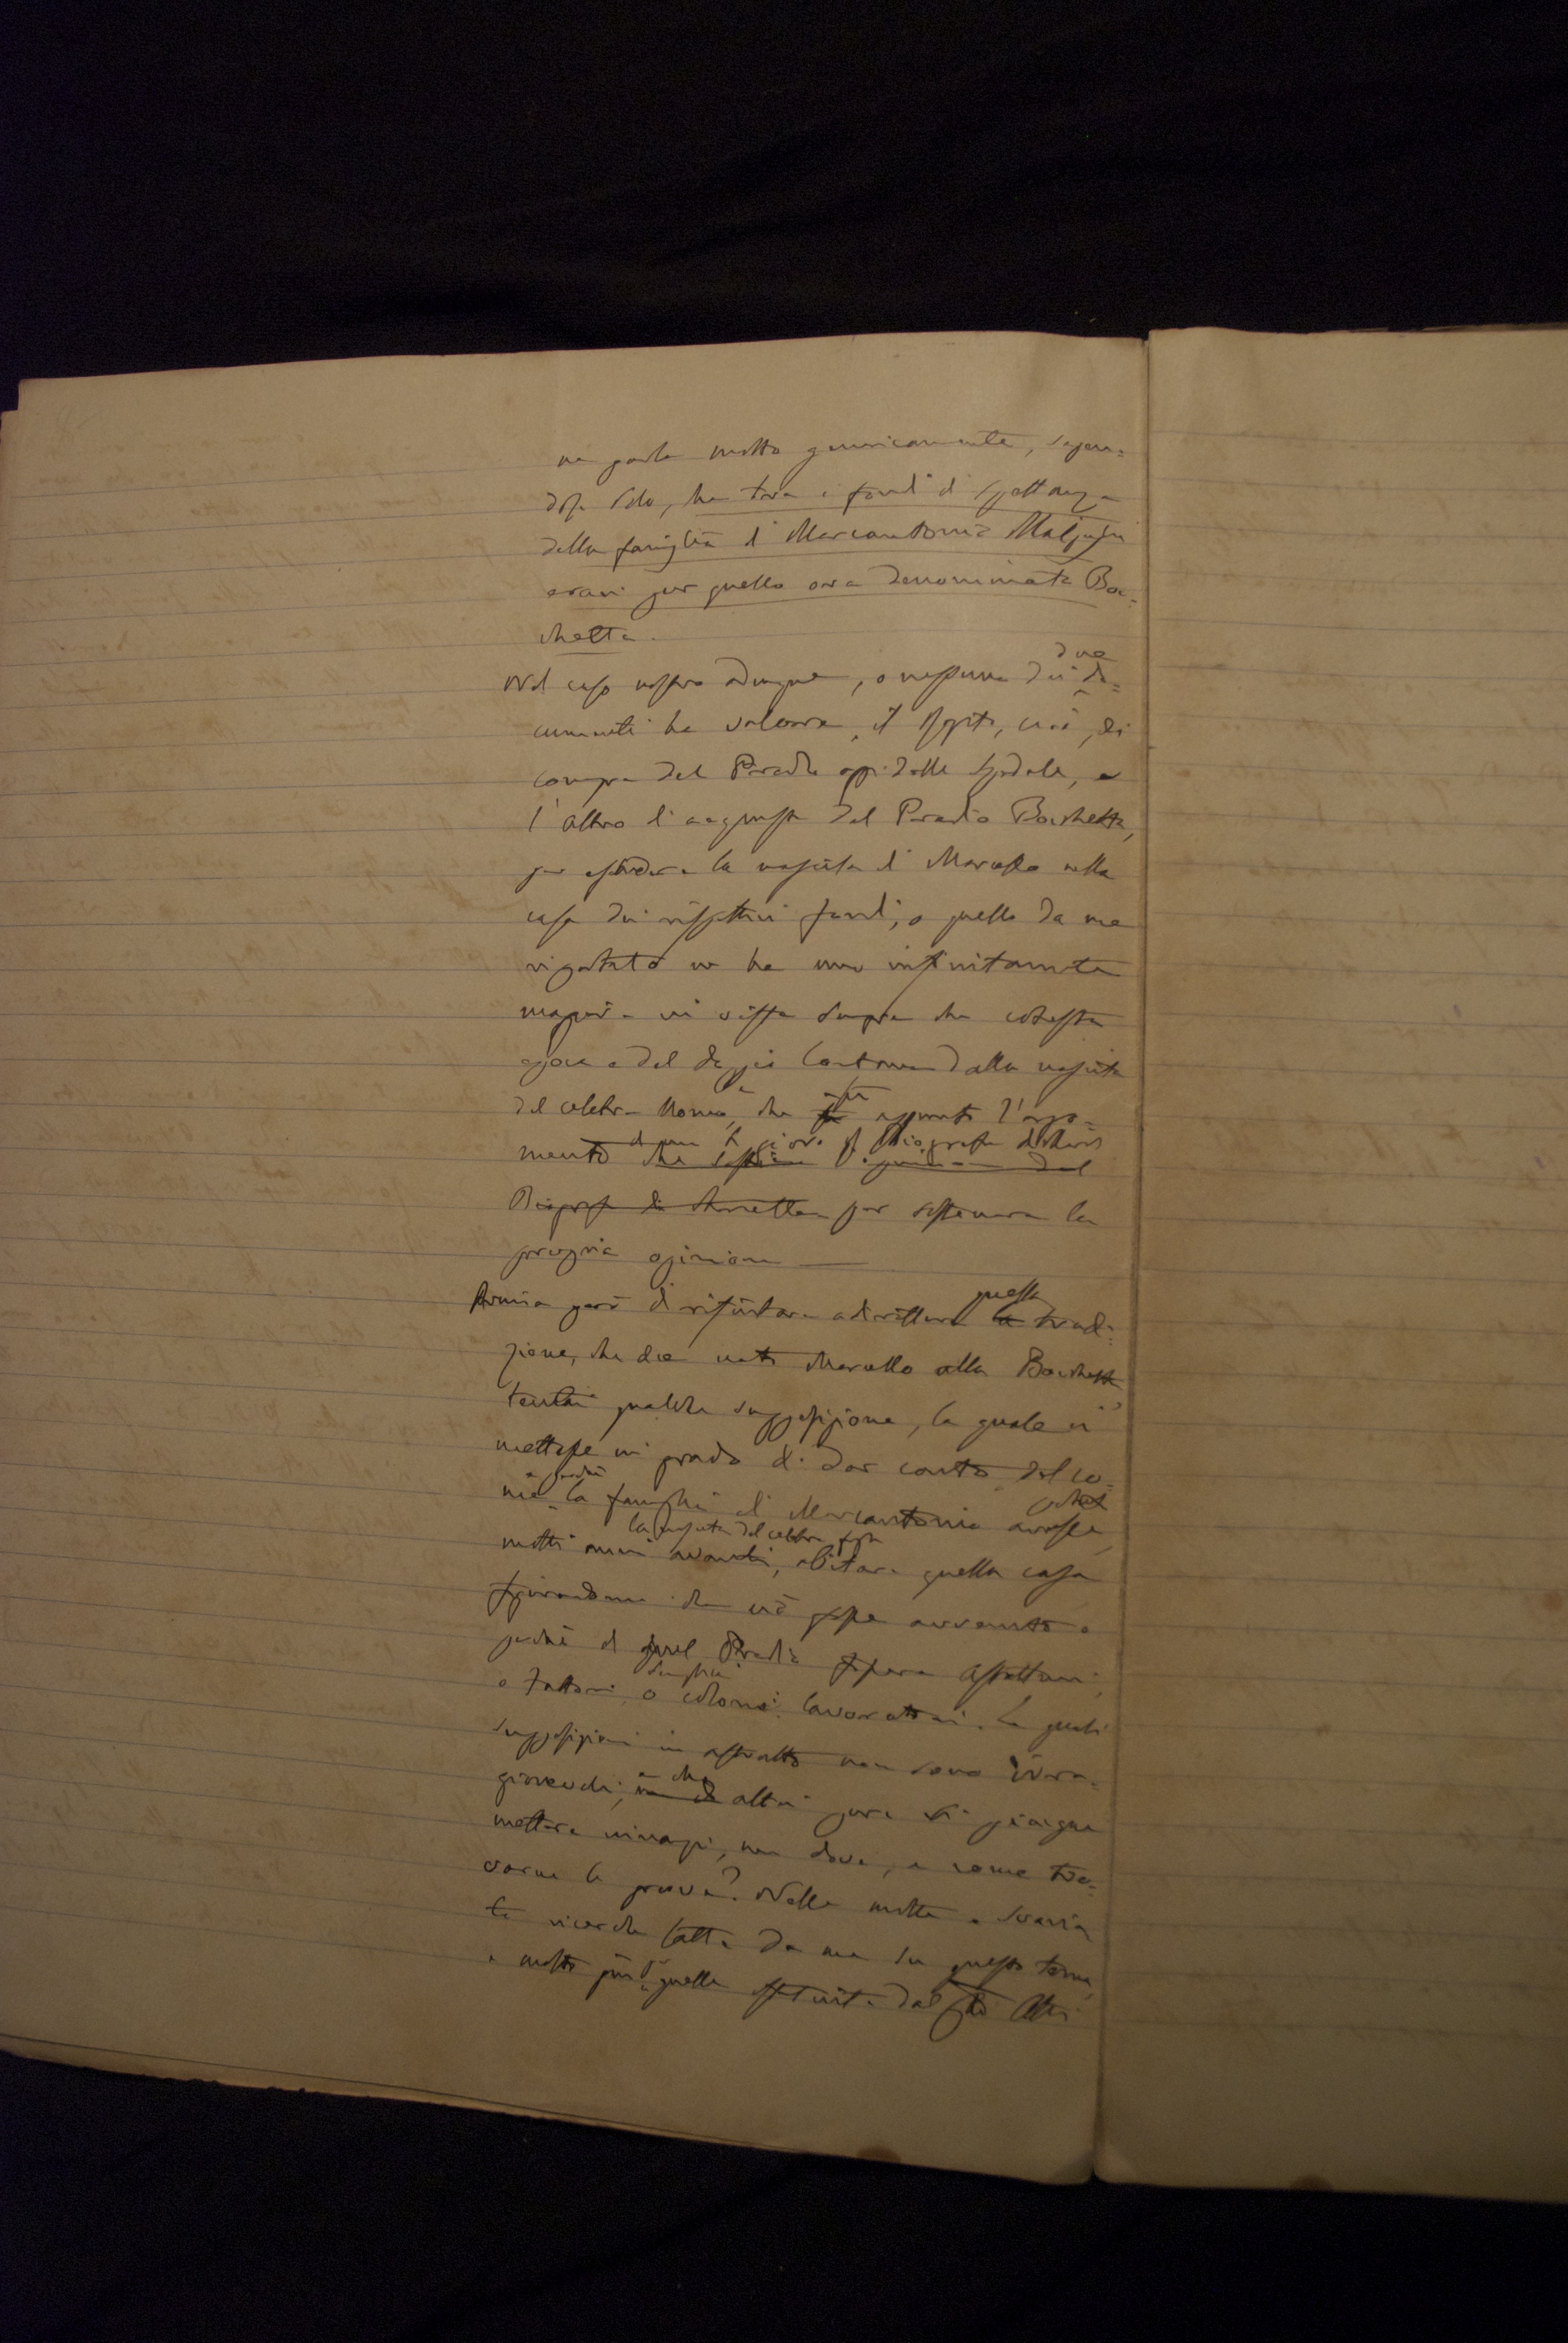 ne parla molto genericamente, sapen=
dosi solo, che tra i fondi di spettanza
della famiglia di Marcantonio Malpighi
eravi pur quello ora denominato Boc=
chetta.
Nel caso nostro adunque, o nessuno dei due do=
cumenti ha valore, il Rogito, cioè, di
compra del Predio oppidalle Spedale, e
l'altro di acquisto del Predio Bocchetta,
per escludere la nascita di Marcello nella
casa dei rispettivi fondi; o quello da me
riportato ne ha uno infinitamente
maggiore in vista sempre che cotesta
epoca è del doppio lontana dalla nascita
del celebre Uomo, che fu appunto l'argo=
mento di cui si giova il Biografo
Biografo di Crevalcore per sostenere la
propria opinione —
Prima però di rifiutare addirittura questa tradi=
zione, che dice nato Marcello alla Bocchetta
tentai qualche supposizione, la quale ci
mettesse in grado di dar conto del co=
me e perchè la famiglia di Marcantonio avesse potuto
molti anni avanti la nascita del celebre figlio, abitare quella casa
figurandomi che ciò fosse avvenuto o
perchè di quel Predio fossero Affittuari,
o Fattori, o semplici coloni lavoratori. Le quali
supposizioni in astratto non sono irra=
gionevoli, e che altri pure si piacque
mettere innanzi, ma dove, e come tro=
varne le prove? Nelle molte e svaria
te ricerche fatte da me su questo tema,
e molto più in quelle istituite dal Atti